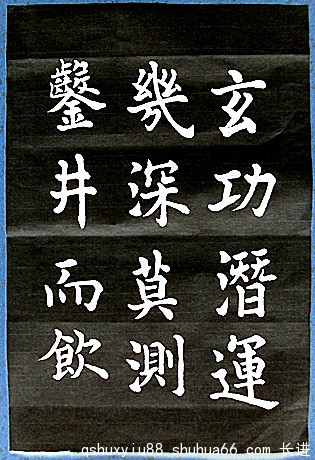 玄功潛運
幾深莫測
鑿井而飲
qshuxyju88.shuhua66.com 长进